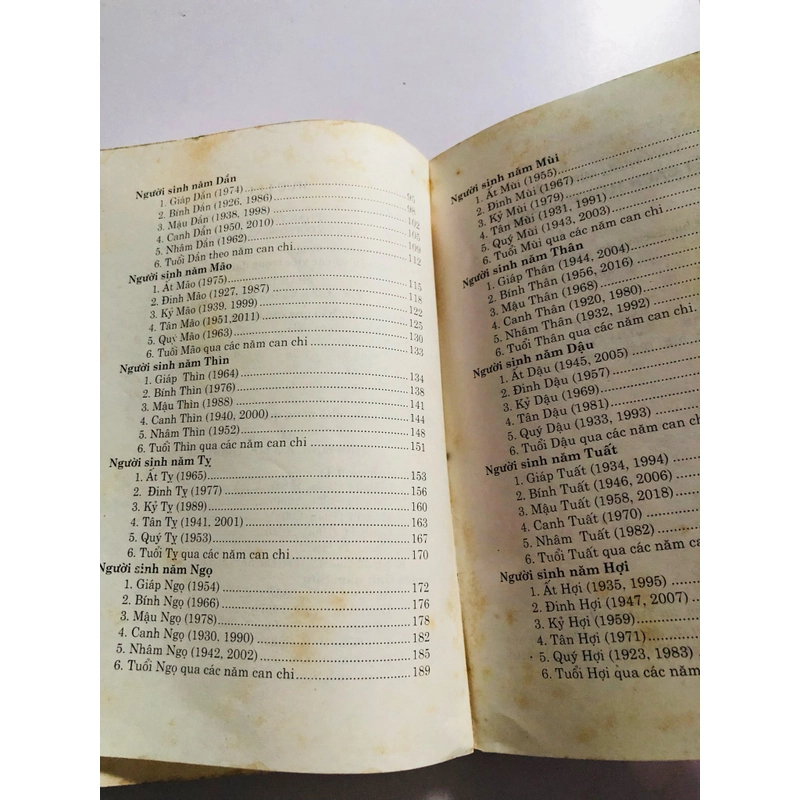 Người sinh năm Dần
1. Giáp Dần (1974) ........ 95
2. Bính Dần (1926, 1986) ........ 98
3. Mậu Dần (1938, 1998) ........ 102
4. Canh Dần (1950, 2010) ........ 105
5. Nhâm Dần (1962) ........ 109
6. Tuổi Dần theo năm can chi ........ 112
Người sinh năm Mão
1. Ất Mão (1975) ........ 115
2. Đinh Mão (1927, 1987) ........ 118
3. Kỷ Mão (1939, 1999) ........ 122
4. Tân Mão (1951,2011) ........ 125
5. Quý Mão (1963) ........ 130
6. Tuổi Mão qua các năm can chi ........ 133
Người sinh năm Thìn
1. Giáp Thìn (1964) ........ 134
2. Bính Thìn (1976) ........ 138
3. Mậu Thìn (1988) ........ 141
4. Canh Thìn (1940, 2000) ........ 144
5. Nhâm Thìn (1952) ........ 148
6. Tuổi Thìn qua các năm can chi ........ 151
Người sinh năm Tỵ
1. Ất Tỵ (1965) ........ 153
2. Đinh Tỵ (1977) ........ 156
3. Kỷ Tỵ (1989) ........ 160
4. Tân Tỵ (1941, 2001) ........ 163
5. Quý Tỵ (1953) ........ 167
6. Tuổi Tỵ qua các năm can chi ........ 170
Người sinh năm Ngọ
1. Giáp Ngọ (1954) ........ 172
2. Bính Ngọ (1966) ........ 176
3. Mậu Ngọ (1978) ........ 178
4. Canh Ngọ (1930, 1990) ........ 182
5. Nhâm Ngọ (1942, 2002) ........ 185
6. Tuổi Ngọ qua các năm can chi ........ 189
Người sinh năm Mùi
1. Ất Mùi (1955) ........
2. Đinh Mùi (1967) ........
3. Kỷ Mùi (1979) ........
4. Tân Mùi (1931, 1991) ........
5. Quý Mùi (1943, 2003) ........
6. Tuổi Mùi qua các năm can chi
Người sinh năm Thân
1. Giáp Thân (1944, 2004) ........
2. Bính Thân (1956, 2016) ........
3. Mậu Thân (1968) ........
4. Canh Thân (1920, 1980) ........
5. Nhâm Thân (1932, 1992) ........
6. Tuổi Thân qua các năm can chi.
Người sinh năm Dậu
1. Ất Dậu (1945, 2005) ........
2. Đinh Dậu (1957) ........
3. Kỷ Dậu (1969) ........
4. Tân Dậu (1981) ........
5. Quý Dậu (1933, 1993) ........
6. Tuổi Dậu qua các năm can chi
Người sinh năm Tuất
1. Giáp Tuất (1934, 1994) ........
2. Bính Tuất (1946, 2006) ........
3. Mậu Tuất (1958, 2018) ........
4. Canh Tuất (1970) ........
5. Nhâm Tuất (1982) ........
6. Tuổi Tuất qua các năm can chi
Người sinh năm Hợi
1. Ất Hợi (1935, 1995) ........
2. Đinh Hợi (1947, 2007) ........
3. Kỷ Hợi (1959) ........
4. Tân Hợi (1971) ........
5. Quý Hợi (1923, 1983) ........
6. Tuổi Hợi qua các năm